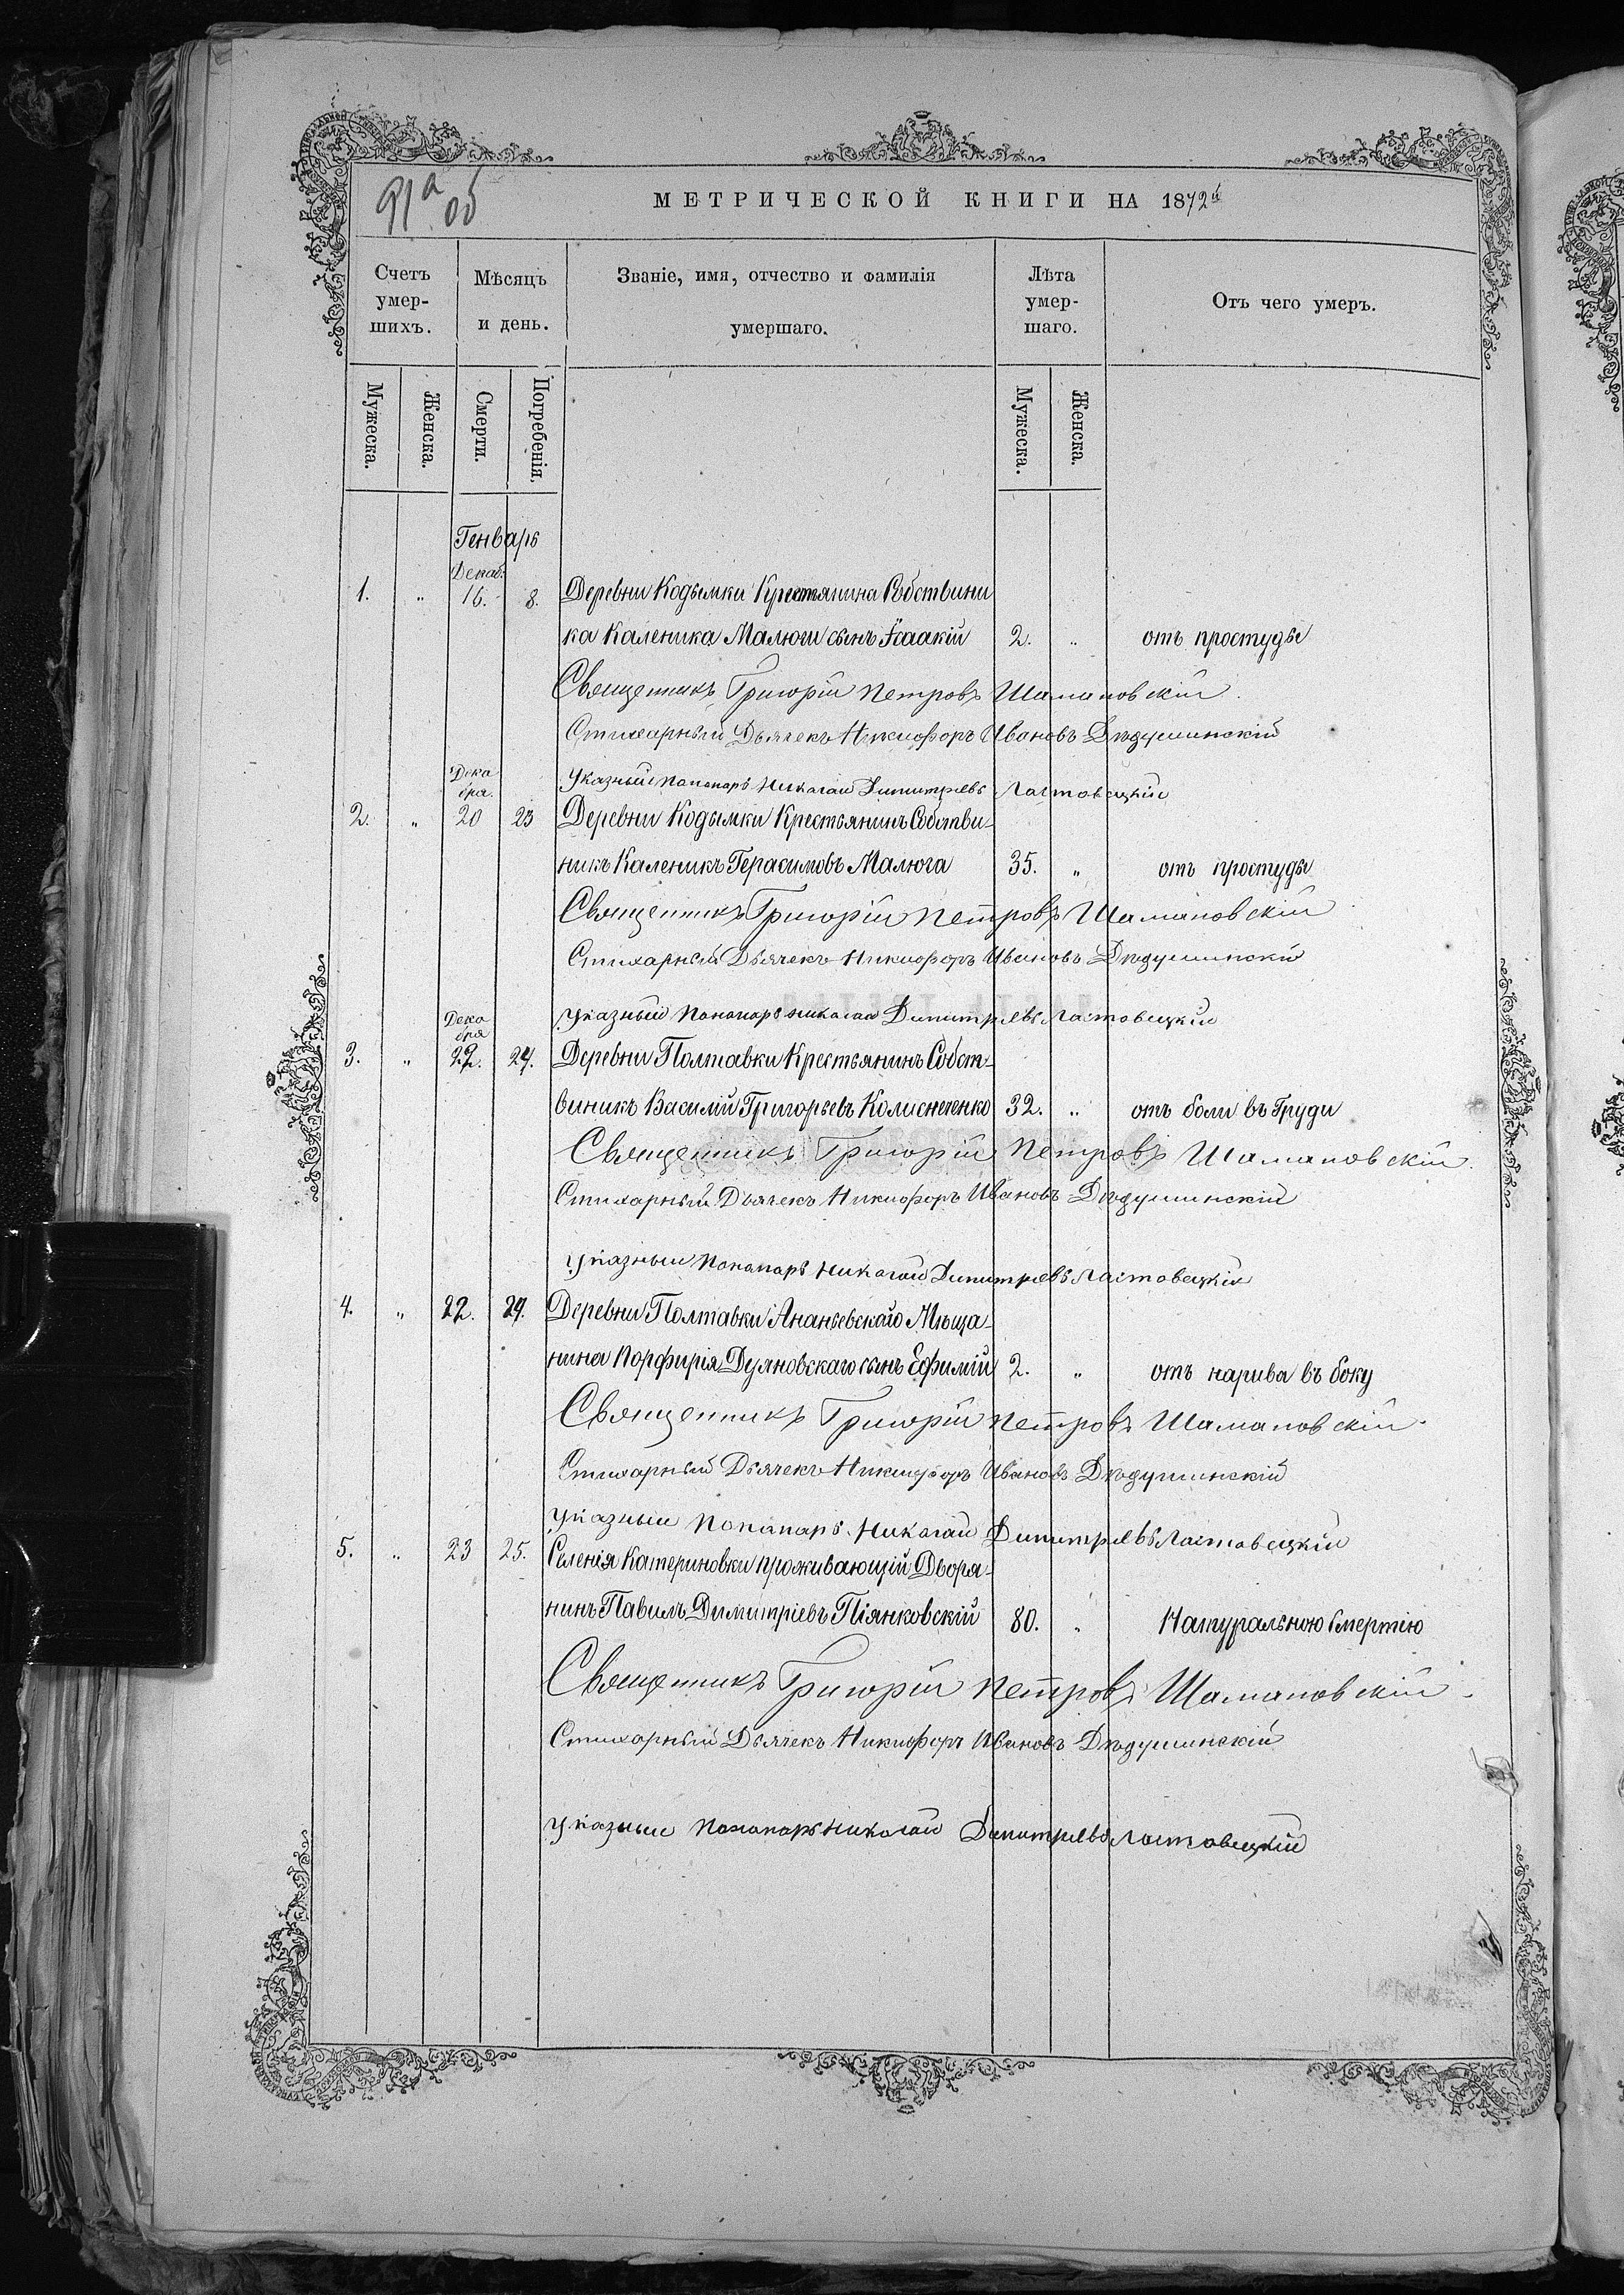 91а об
МЕТРИЧЕСКОЙ КНИГИ НА 1872й
Счетъ умер-шихъ.
Мѣсяцъ и день.
Званіе, имя, отчество и фамилія умершаго.
Лѣта умер-шаго.
Отъ чего умеръ.
Мужеска. Женска. Смерти. Погребенія. Мужеска. Женска.
Генварь
Декаб:
1. „ 16. 8. Деревни Кодымки Крестянина Собствини
ка Каленика Малюги сынъ Ісаакій 2. „ отъ простуды
Священникъ Григорій Петровъ Шамановскій.
Стихарный Дьячекъ Никифоръ Ивановъ Дѣдушинскій
Дека
бря.
Указный Пономарь Николай Димитріевъ Ластовецкій
2. „ 20 23 Деревни Кодымки Крестьянинъ Собстви-
никъ Каленикъ Герасимовъ Малюга 35. „ отъ простуды
Священникъ Григорій Петровъ Шамановскій
Стихарный Дьячекъ Никифоръ Ивановъ Дѣдушинскій
Дека
бря
Указный Пономарь Николай Димитріевъ Ластовецкій
3. „ 22. 24. Деревни Полтавки Крестьянинъ Собст-
виникъ Василій Григорьевъ Колисниченко 32. „ отъ боли въ Груди
Священникъ Григорій Петровъ Шамановскій.
Стихарный Дьячекъ Никифоръ Ивановъ Дѣдушинскій
Указный Пономарь Николай Димитріевъ Ластовецкій
4. „ 22. 24. Деревни Полтавки Ананьевскаго Мѣща-
нина Порфирія Дуяновскаго сынъ Ефимій 2. „ отъ нарива въ боку
Священникъ Григорій Петровъ Шамановскій.
Стихарный Дьячекъ Никифоръ Ивановъ Дѣдушинскій
Указный Пономарь Николай Димитріевъ Ластовецкій
5. „ 23 25. Селенія Катериновки проживающій Дворя-
нинъ Павилъ Димитріевъ Піянковскій 80. „ Натуральною Смертію
Священникъ Григорій Петровъ Шамановскій.
Стихарный Дьячекъ Никифоръ Ивановъ Дѣдушинскій
Указный Пономарь Николай Димитріевъ Ластовецкій